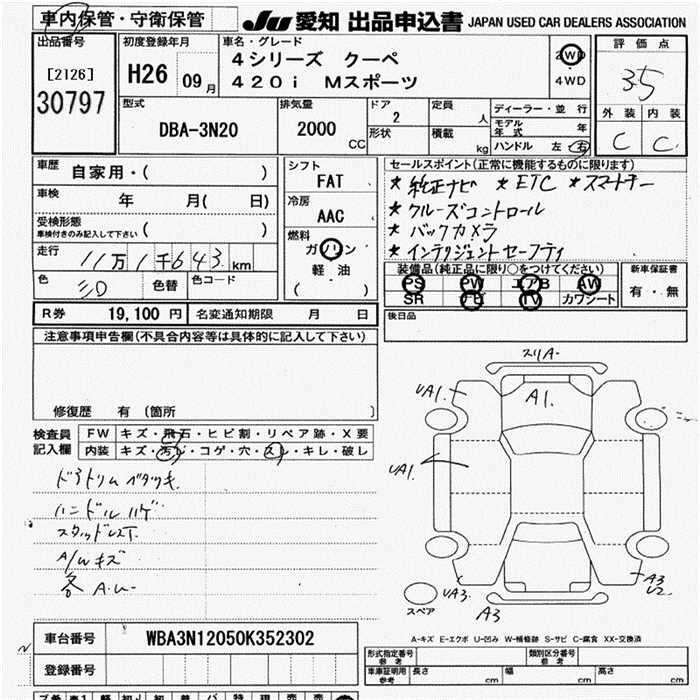 車内保管・守衛保管 JU 愛知 出品申込書 JAPAN USED CAR DEALERS ASSOCIATION
出品番号 初度登録年月 車名・グレード 評価点
[2126] H26 09月 4シリーズ クーペ 2WD 3.5
30797 420i Mスポーツ 4WD
外装 内装
C C
型式 排気量 ドア 定員 ディーラー・並行
DBA-3N20 2000 CC 2 人 モデル年式 年
形状 積載 kg ハンドル 左 右
車歴 自家用・( ) シフト FAT セールスポイント(正常に機能するものに限ります)
★純正ナビ ★ETC ★スマートキー
車検 年 月( 日) 冷房 AAC
★クルーズコントロール
受検形態 ( )
車検付きのみ記入して下さい
★バックカメラ
走行 11万1千643km 燃料 ガソリン
★インテリジェントセーフティ
軽・油
( )
色 シロ 色替 色コード
装備品(純正品に限り○をつけてください) 新車保証書
PS PW エアB AW 有・無
SR ナビ TV カワシート
R券 19,100円 名変通知期限 月 日 後日品
注意事項申告欄(不具合内容等は具体的に記入して下さい)
修復歴 有 (箇所 )
検査員 FW キズ・飛石・ヒビ割・リペア跡・X要
記入欄 内装 キズ・汚レ・コゲ・穴・スレ・キレ・破レ
ドアトリムベタツキ
ハンドルハゲ
スタッドレスT.
A/Wキズ
各A.U-
スリA-
UA1.
A1.
UA1.
UA3.
A3
A3
U2.
スペア
A-キズ E-エクボ U-凹み W-補修跡 S-サビ C-腐食 XX-交換済
車台番号 WBA3N12050K352302
登録番号
形式指定番号 参考 類別区分番号 参考
車庫証明用 参考 長さ cm 幅 cm 高さ cm